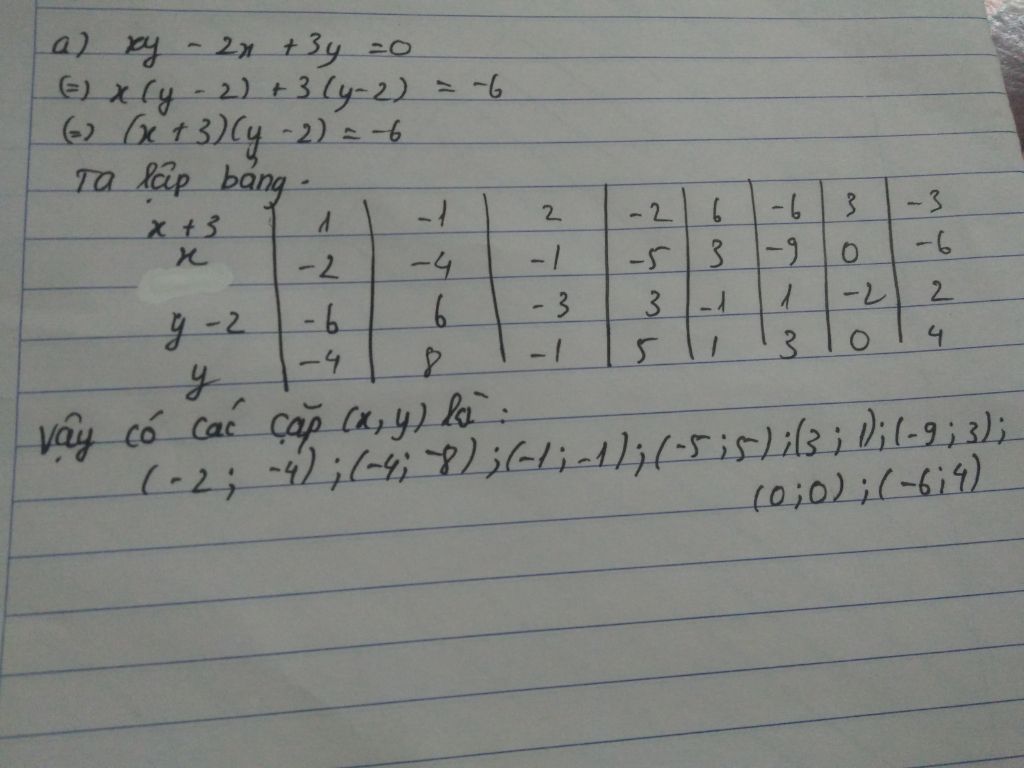 a) xy - 2x + 3y = 0
(=) x(y - 2) + 3(y-2) = -6
(=) (x + 3)(y - 2) = -6
Ta lập bảng.
x + 3 | 1 | -1 | 2 | -2 | 6 | -6 | 3 | -3
x | -2 | -4 | -1 | -5 | 3 | -9 | 0 | -6
y - 2 | -6 | 6 | -3 | 3 | -1 | 1 | -2 | 2
y | -4 | 8 | -1 | 5 | 1 | 3 | 0 | 4
Vậy có các cặp (x, y) là:
(-2; -4) ; (-4; -8) ; (-1; -1) ; (-5; 5) ; (3; 1) ; (-9; 3);
(0; 0) ; (-6; 4)